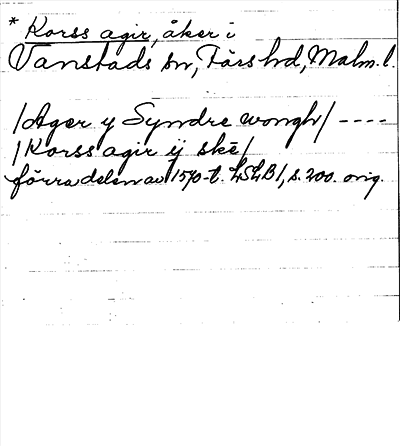 * Korss agir, åker i
Vanstads sn, Färs hd, Malm. l.
/Ager y Syndre wongh/ ----
/Korss agir ij skē/
förra delen av 1570-t. LSLB1, s. 200. orig.